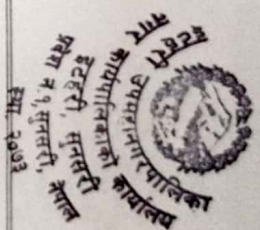 इटहरी उपमहानगरपालिका
नगर कार्यपालिकाको कार्यालय
इटहरी, सुनसरी
प्रदेश नं.१, सुनसरी, नेपाल
स्था. २०७३